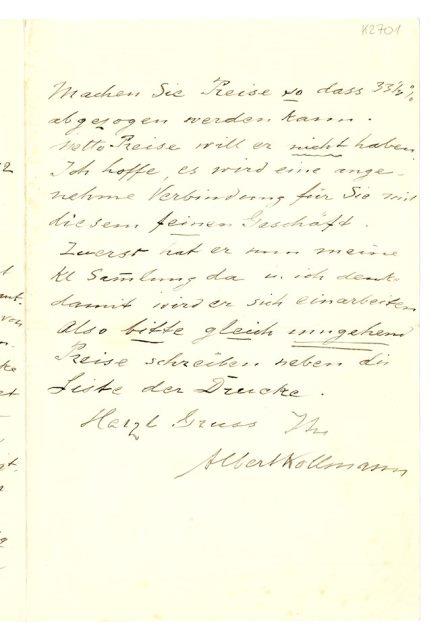 K2701
Machen Sie Preise so dass 33⅓%
abgezogen werden kann.
Netto Preise will er nicht haben
Ich hoffe, es wird eine ange-
nehme Verbindung für Sie mit
diesem feinen Geschäft.
Zuerst hat er nun meine
Kl Sam̅lung da u. ich denke
damit wird er sich einarbeiten
Also bitte gleich umgehend
Preise schreiben neben die
Liste der Drucke.
Herzl Gruss Ihr
Albert Kollmann